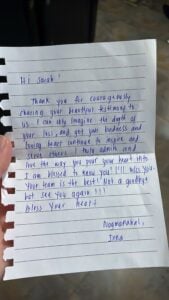 Hi Sarah!
Thank you for courageously
sharing your beautiful testimony to
us. I can only imagine the depth of
your loss, and yet your kindness and
loving heart continue to inspire and
serve others. I truly admire and
love the way you pour your heart into
I am blessed to know you! I'll miss you.
Your team is the best! Not a goodbye
but see you again!!!
Bless your heart
Nagmamahal,